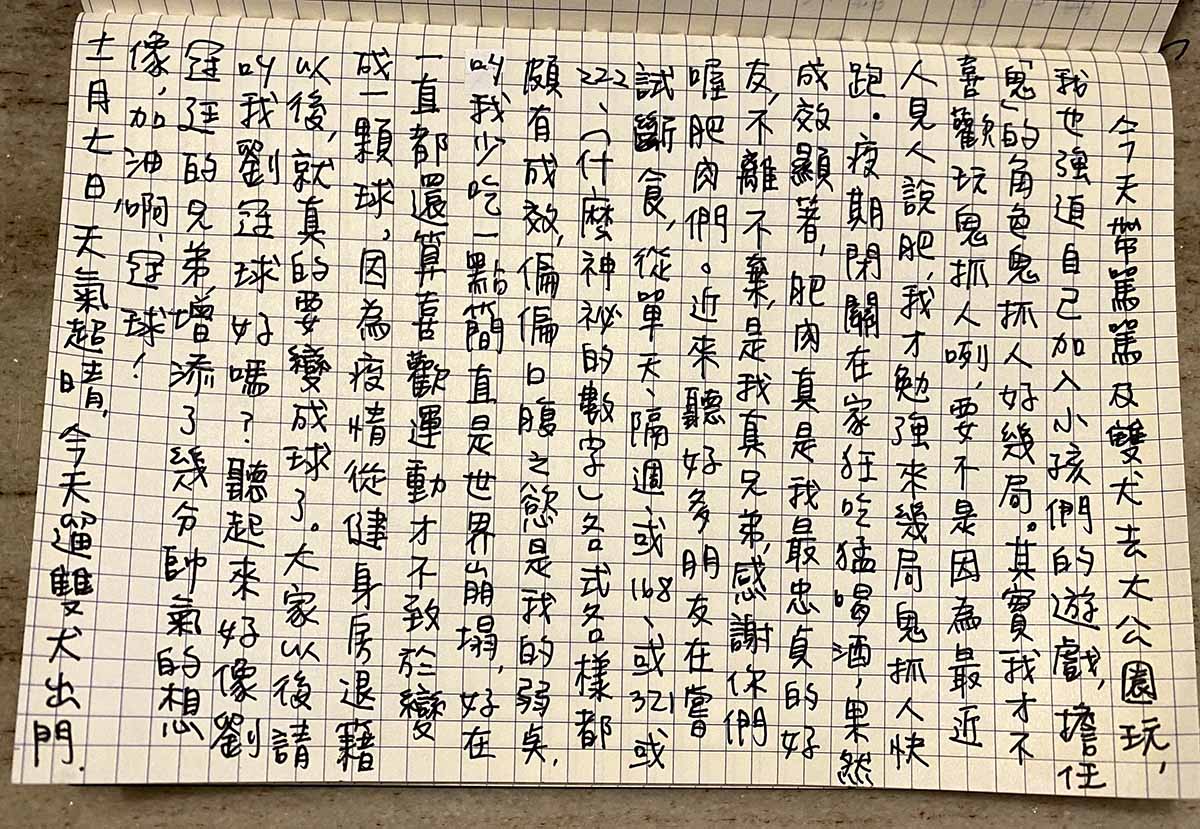 今天帶篤篤及雙犬去大公園玩，
我也強迫自己加入小孩們的遊戲，擔任
「鬼」的角色鬼抓人好幾局。其實我才不
喜歡玩鬼抓人咧，要不是因為最近
人見人說肥，我才勉強來幾局鬼抓人快
跑。疫期閉關在家狂吃猛喝酒，果然
成效顯著，肥肉真是我最忠貞的好
友，不離不棄，是我真兄弟，感謝你們
喔肥肉們。近來聽好多朋友在嘗
試斷食，從單天、隔週、或168、或321或
222、(什麼神祕的數字)各式各樣都
頗有成效，偏偏口腹之慾是我的弱点，
叫我少吃一點簡直是世界崩塌，好在
一直都還算喜歡運動才不致於變
成一顆球，因為疫情從健身房退籍
以後，就真的要變成球了。大家以後請
叫我劉冠球好嗎？聽起來好像劉
冠廷的兄弟，增添了幾分帥氣的想
像，加油啊，冠球！
十一月七日天氣超晴，今天遛雙犬出門.